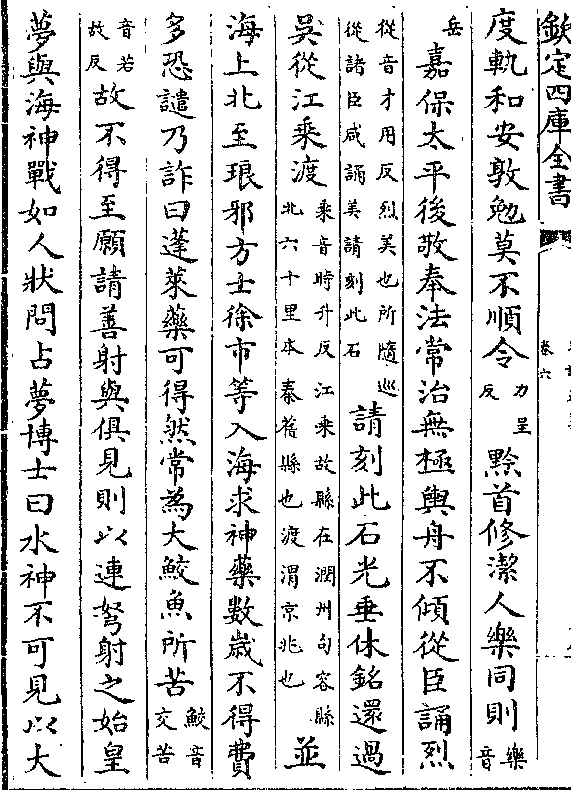 欽定四庫全書
卷六
度軌和安敦勉莫不順令力呈反黔首修潔人樂同則樂音
岳嘉保太平後敬奉法常治無極輿舟不傾從臣誦烈
從音才用反烈美也所隨巡從諸臣咸誦美請刻此石請刻此石光垂休銘還過
吳從江乘渡乘音時升反江乘故縣在潤州句容縣北六十里本秦舊縣也渡渭京兆也並
海上北至琅邪方士徐市等入海求神藥數歲不得費
多恐譴乃詐曰蓬萊藥可得然常為大鮫魚所苦鮫音交苦
音若故反故不得至願請善射與俱見則以連弩射之始皇
夢與海神戰如人狀問占夢博士曰水神不可見以大